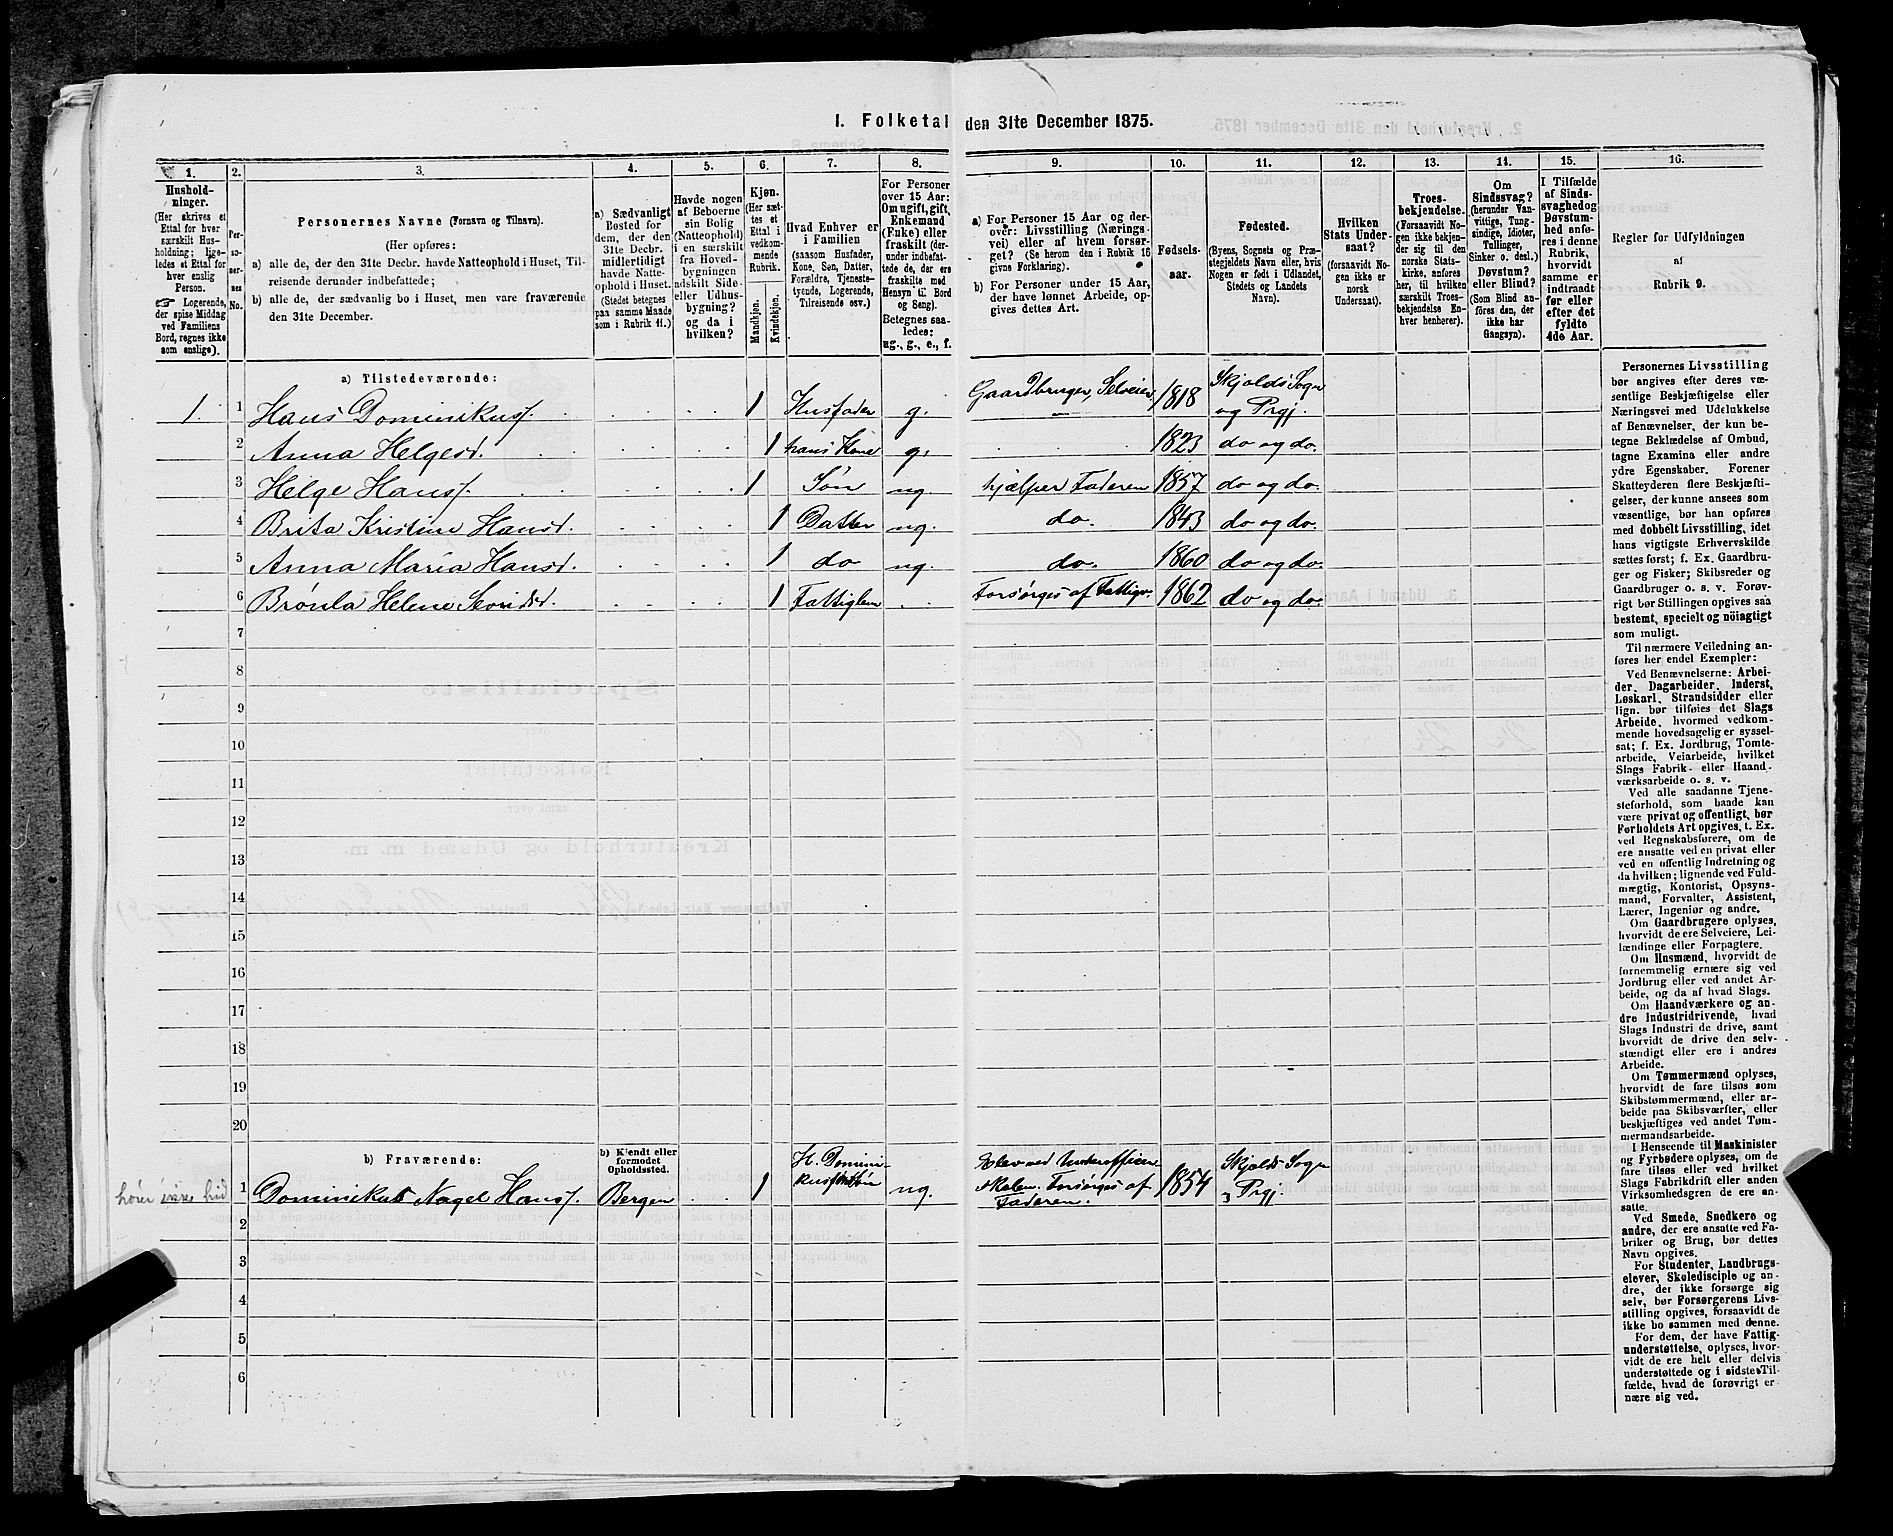 I. Folketal den 31te December 1875.
1. 2. 3. 4. 5. 6. 7. 8. 9. 10. 11. 12. 13. 14. 15. 16.
Hushold-
ninger.
(Her skrives et
Ettal for hver
særskilt Hus-
holdning; lige-
ledes et Ettal for
hver enslig
Person.
☞ Logerende,
der spise Middag
ved Familiens
Bord, regnes ikke
som enslige).
Per-
so-
ner-
nes
No.
Personernes Navne (Fornavn og Tilnavn).
(Her opføres:
a) alle de, der den 31te Decbr. havde Natteophold i Huset, Til-
reisende derunder indbefattede;
b) alle de, der sædvanlig bo i Huset, men vare fraværende
den 31te December.
a) Sædvanligt
Bosted for
dem, der den
31te Decbr.
midlertidigt
havde Natte-
ophold i Huset.
(Stedet betegnes
paa samme Maade
som i Rubrik 11.)
Havde nogen
af Beboerne
sin Bolig
(Natteophold)
i en særskilt
fra Hoved-
bygningen
adskilt Side-
eller Udhus-
bygning?
og da i
hvilken?
Kjøn.
(Her sæt-
tes et
Ettal i
vedkom-
mende
Rubrik.
Mandkjøn.
Kvindekjøn.
Hvad Enhver er
i Familien
(saasom Husfader,
Kone, Søn, Datter,
Forældre, Tjeneste-
tyende, Logerende,
Tilreisende osv.)
For Personer
over 15 Aar:
Om ugift, gift,
Enkemand
(Enke) eller
fraskilt (der-
under indbefat-
tede de, der ere
fraskilte med
Hensyn til Bord
og Seng).
Betegnes saa-
ledes:
ug., g., e., f.
a) For Personer 15 Aar og der-
over: Livsstilling (Nærings-
vei) eller af hvem forsør-
get? (Se herom den i Rubrik 16
givne Forklaring).
b) For Personer under 15 Aar,
der have lønnet Arbeide, op-
gives dettes Art.
Fødsels-
aar.
Fødested.
(Byens, Sognets og Præ-
stegjeldets Navn eller, hvis
Nogen er født i Udlandet,
Stedets og Landets
Navn).
Hvilken
Stats Under-
saat?
(forsaavidt No-
gen ikke er
norsk
Undersaat).
Troes-
bekjendelse.
(Forsaavidt No-
gen ikke bekjen-
der sig til den
norske Stats-
kirke, anføres
her, til hvilken
særskilt Troes-
bekjendelse En-
hver henhører).
Om
Sindssvag?
(herunder Van-
vittige, Tung-
sindige, Idioter,
Tullinger,
Sinker o. desl.)
Døvstum?
eller Blind?
(Som Blind an-
føres den, der
ikke har
Gangsyn).
I Tilfælde
af Sinds-
svaghed og
Døvstum-
hed anfø-
res i denne
Rubrik,
hvorvidt
samme er
indtraadt
før eller
efter det
fyldte
4de Aar.
Regler for Udfyldningen
af
Rubrik 9.
a) Tilstedeværende:
1. 1 Hans Dominikuss. 1 Husfader g. Gaardbruger, Selveier 1818 Skjolds Sogn og Prgj.
2 Anna Helgesd. 1 hans Kone g. 1823 do og do.
3 Helge Hanss. 1 Søn ug. hjælper Faderen 1857 do og do.
4 Brita Kristine Hansd. 1 Datter ug. do. 1843 do og do.
5 Anna Maria Hansd. 1 do ug. do. 1860 do og do.
6 Brønla Helene 1 Fattiglem Forsørges af Fattigv. 1862 do og do.
7
8
9
10
11
12
13
14
15
16
17
18
19
20
b) Fraværende:
b) Kjendt eller
formodet
Opholdssted.
høer ikke hid 1 Dominikus Nagel Hanss. Bergen 1 H. Domini-
kuss Søn ug. Elev ved Underofficer
skolen. Forsørges af
Faderen. 1854 Skjolds Sogn
Prgj.
2
3
4
5
6
Personernes Livsstilling
bør angives efter deres væ-
sentlige Beskjæftigelse eller
Næringsvei med Udelukkelse
af Benævnelser, der kun be-
tegne Beklædelse af Ombud,
tagne Examina eller andre
ydre Egenskaber. Forener
Skatteyderen flere Beskjæfti-
gelser, der kunne ansees som
væsentlige, bør han opføres
med dobbelt Livsstilling, idet
hans vigtigste Erhvervskilde
sættes først; f. Ex. Gaardbru-
ger og Fisker; Skibsreder og
Gaardbruger o. s. v. Forøv-
rigt bør Stillingen opgives saa
bestemt, specielt og nöiagtigt
som muligt.
Til nærmere Veiledning an-
føres her endel Exempler:
Ved Benævnelserne: Arbei-
der, Dagarbeider, Inderst,
Løskarl, Strandsidder eller
lign. bør tilføies det Slags
Arbeide, hvormed vedkom-
mende hovedsagelig er syssel-
sat; f. Ex. Jordbrug, Tomte-
arbeide, Veiarbeide, hvilket
Slags Fabrik- eller Haand-
værksarbeide o. s. v.
Ved alle saadanne Tjene-
steforhold, som baade kan
være privat og offentligt, bør
Forholdets Art opgives, t. Ex.
ved Regnskabsførere, om de
ere ansatte ved en privat eller
ved en offentlig Indretning og
da hvilken; lignende ved Fuld-
mægtig, Kontorist, Opsyns-
mand, Forvalter, Assistent,
Lærer, Ingeniør og andre.
Om Gaardbrugere oplyses,
hvorvidt de ere Selveiere, Lei-
lændinge eller Forpagtere.
Om Husmænd, hvorvidt de
fornemmelig ernære sig ved
Jordbrug eller ved andet Ar-
beide, og da af hvad Slags.
Om Haandværkere og an-
dre Industridrivende, hvad
Slags Industri de drive, samt
hvorvidt de drive den selv-
stændigt eller ere i andres
Arbeide.
Om Tømmermænd oplyses,
hvorvidt de fare tilsøs som
Skibstømmermænd, eller ar-
beide paa Skibsværfter, eller
beskjæftiges ved andet Tøm-
mermandsarbeide.
I Henseende til Maskinister
og Fyrbødere oplyses, om de
fare tilsøs eller ved hvilket
Slags Fabrikdrift eller anden
Virksomhedsgren de ere an-
satte.
Ved Smede, Snedkere og
andre, der ere ansatte ved Fa-
briker og Brug, bør dettes
Navn opgives.
For Studenter, Landbrugs-
elever, Skoledisciple og an-
dre, der ikke forsørge sig
selv, bør Forsørgerens Livs-
stilling opgives, forsaavidt de
ikke bo sammen med denne.
For dem, der have Fattig-
understøttelse, oplyses, hvor-
vidt de ere helt eller delvis
understøttede og i sidste Til-
fælde, hvad de forøvrigt er-
nære sig ved.